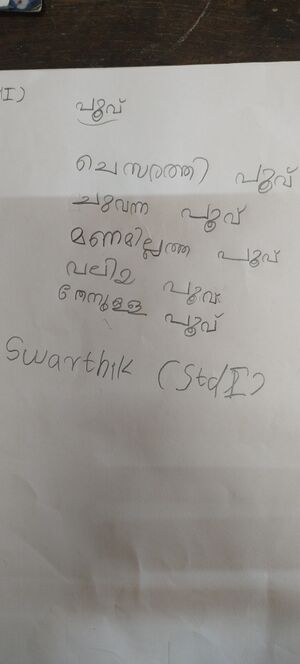 I)
പൂവ്
ചെമ്പരത്തി പൂവ്
ചുവന്ന പൂവ്
മണമില്ലാത്ത പൂവ്
വലിയ പൂവ്
തേനുള്ള പൂവ്
Swarthik (Std I)